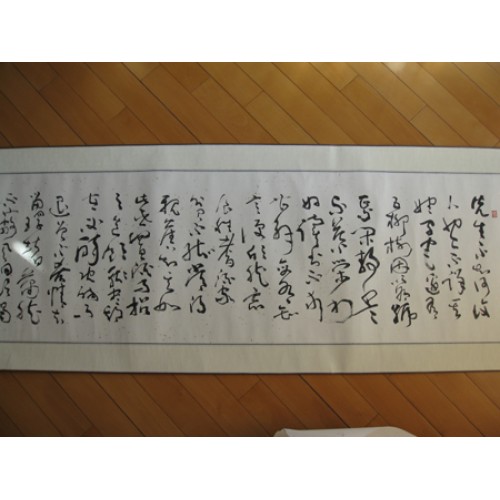 先生不知何许
人也亦不详其
姓字宅边有
五柳树因以为号
焉闲静少言
不慕荣利
好读书不求
甚解每有会
意便欣然忘
食性嗜酒家
贫不能常得
亲旧知其如
此或置酒招
之造饮辄尽期
在必醉既醉
而退曾不吝情去
留环堵萧然
不蔽风日